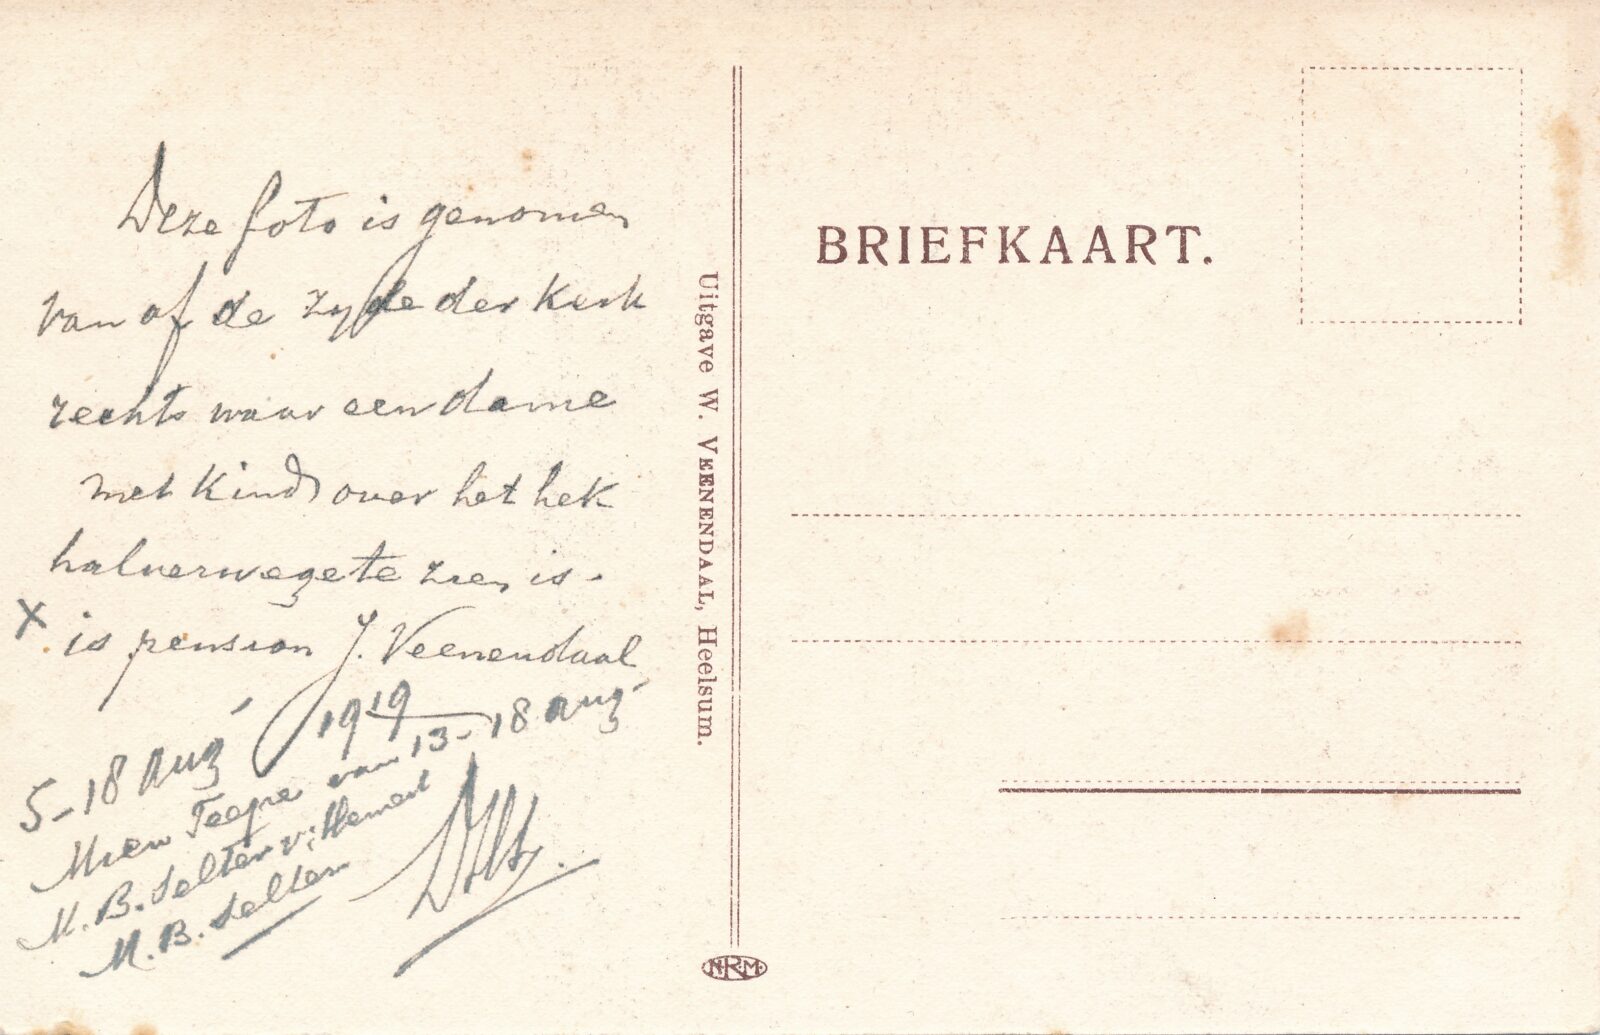 Deze foto is genomen
van af de zyde der Kerk
rechts waar een dame
met Kind over het hek
halverwege te zien is.
X is pension J. Veenendaal
5-18 aug 1919
Mien Teepe van 13-18 aug
M. B. Selter v: Hemert
M. B. Selten
BRIEFKAART.
Uitgave W. VEENENDAAL, Heelsum.
N.R.M.